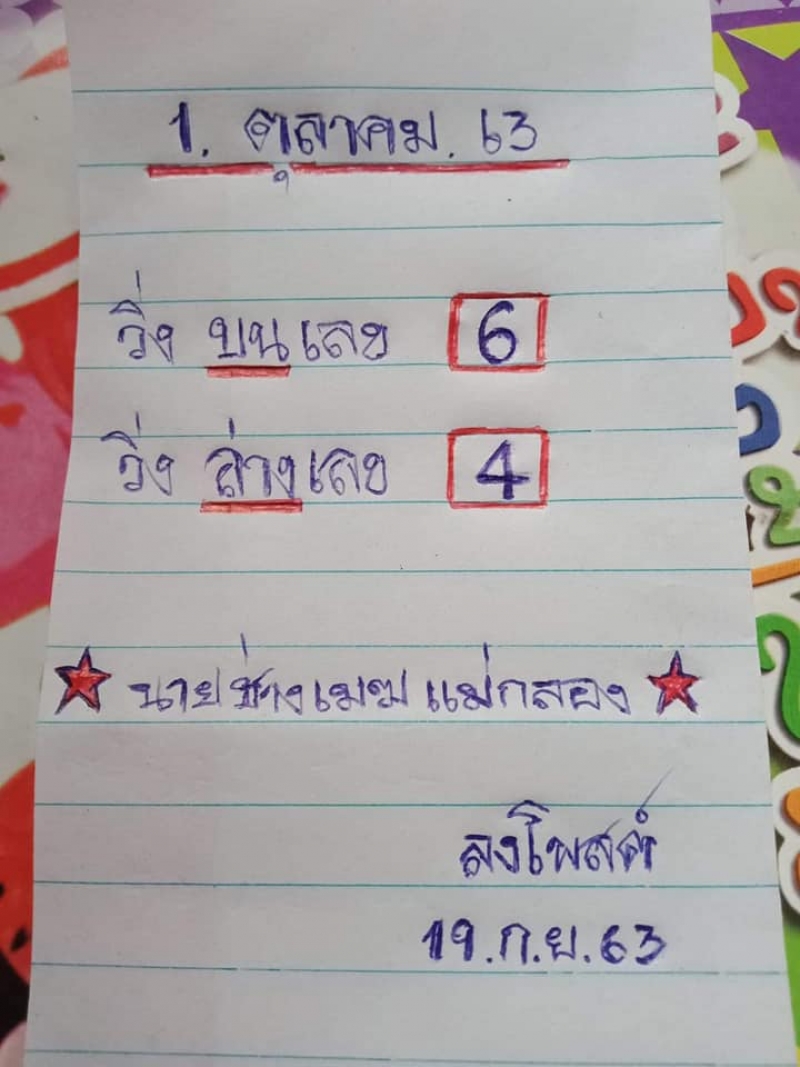 1. ตุลาคม. 63
วิ่ง บน เลข 6
วิ่ง ล่าง เลข 4
นายช่างเมฆ แม่กลอง
ลงโพสต์
19.ก.ย.63